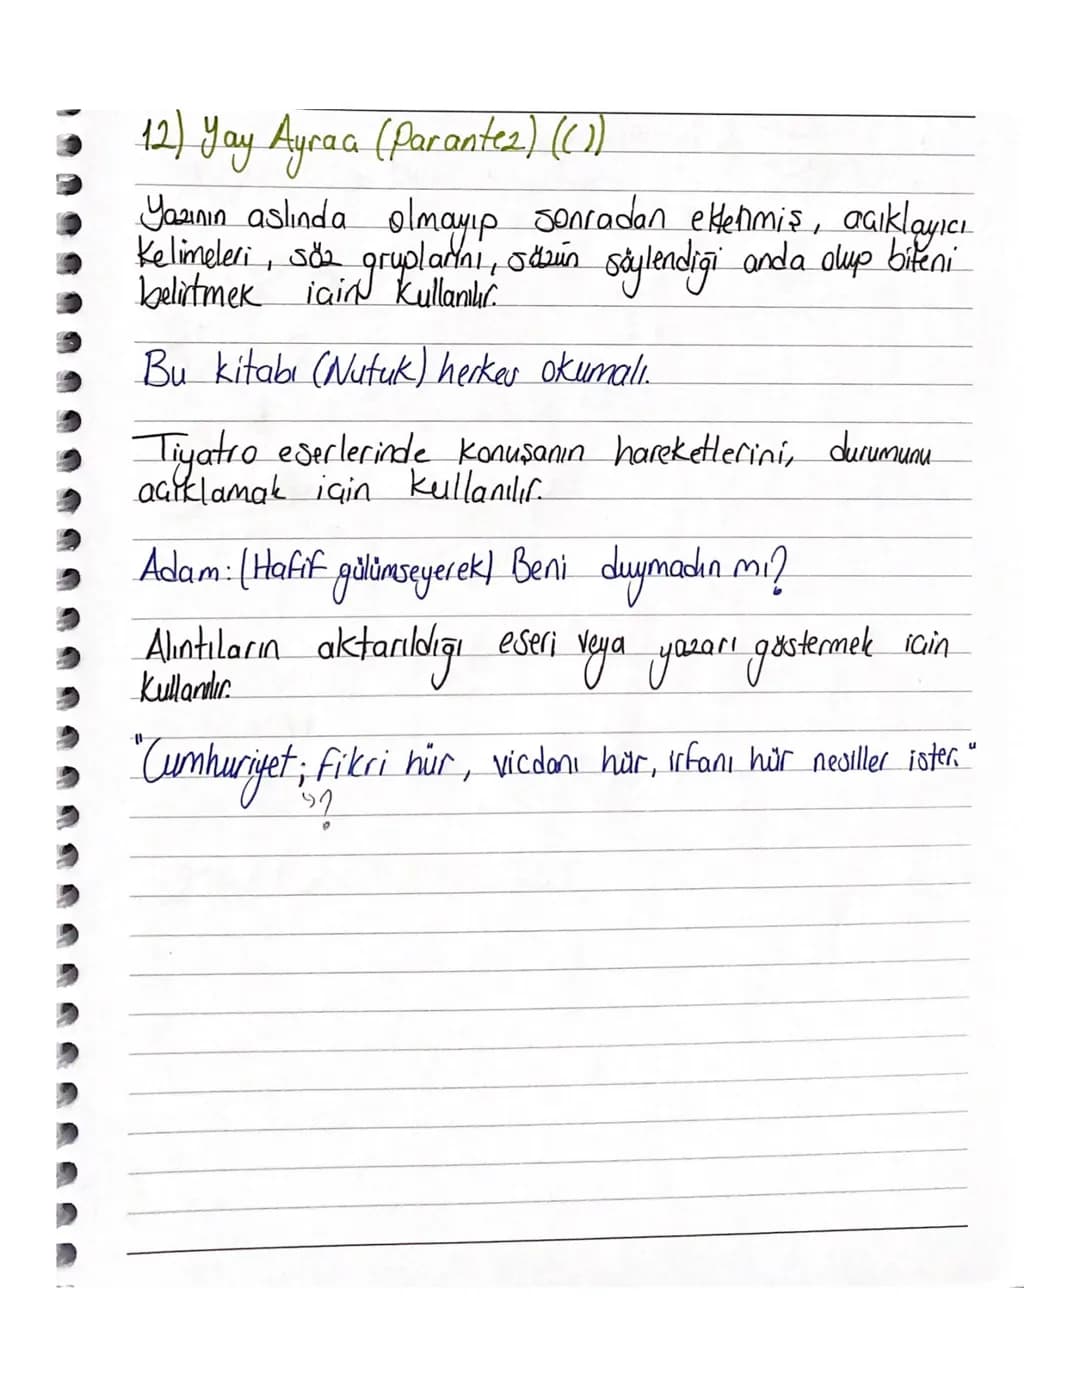 12) Yay Ayraç (Parantez) (( ))
Yazının aslında olmayıp sonradan eklenmiş, açıklayıcı
kelimeleri, söz gruplarını, sözün söylendiği anda olup biteni
belirtmek için kullanılır.
Bu kitabı (Nutuk) herkes okumalı.
Tiyatro eserlerinde konuşanın hareketlerini, durumunu
açıklamak için kullanılır.
Adam: (Hafif gülümseyerek) Beni duymadın mı?
Alıntıların aktarıldığı eseri veya yazarı göstermek için
kullanılır.
"Cumhuriyet; fikri hür, vicdanı hür, irfanı hür nesiller ister."
↳?